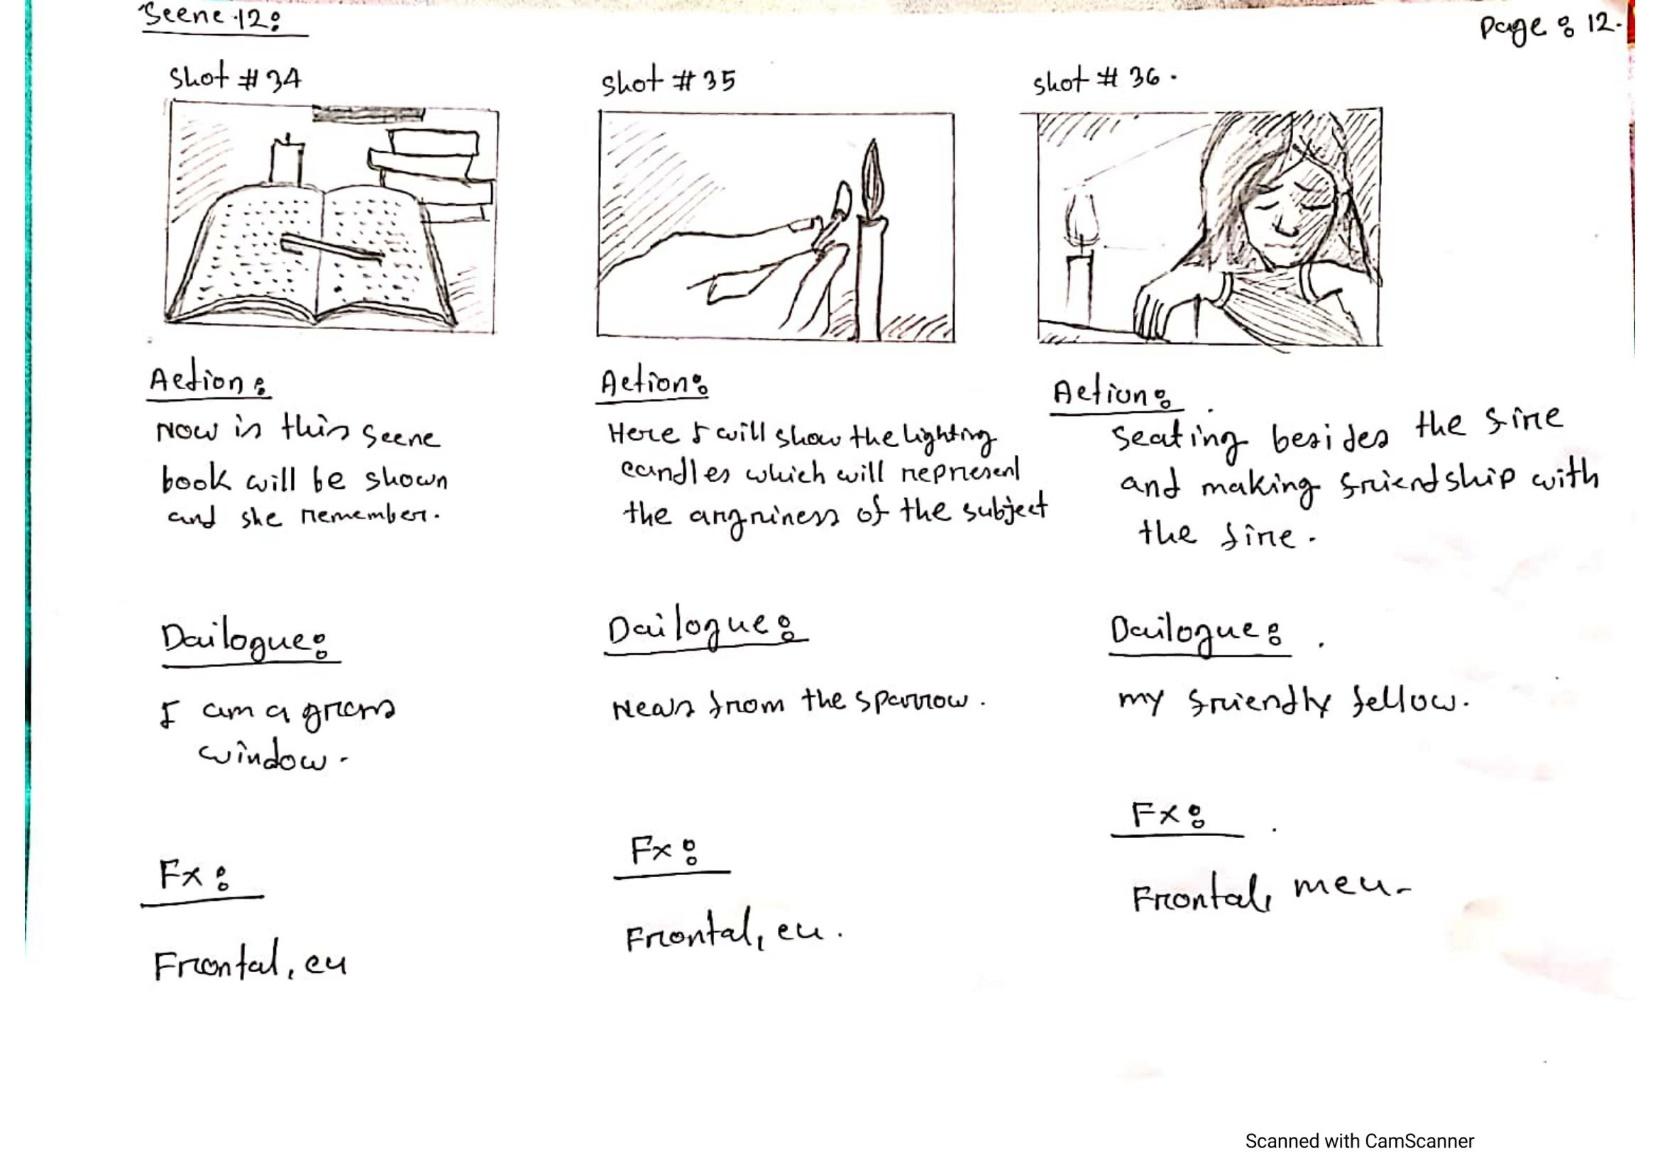 Scene 12:
Page: 12.
Shot # 34
Action:
Now in this scene
book will be shown
and she remember.
Dailogue:
I am a grass
window.
Fx:
Frontal, cu
Shot # 35
Action:
Here I will show the lighting
candles which will represent
the angriness of the subject
Dailogue:
News from the sparrow.
Fx:
Frontal, cu.
Shot # 36.
Action:
Seating besides the fire
and making friendship with
the fire.
Dailogue:
my friendly fellow.
Fx:
Frontal, mcu.
Scanned with CamScanner